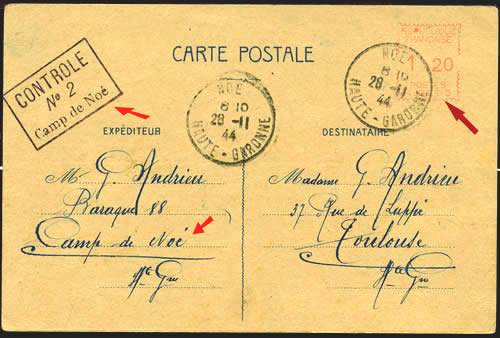 CONTROLE
No 2
Camp de Noé
CARTE POSTALE
NOE
8 H 10
28 -11
44
HAUTE - GARONNE
NOE
8 H 10
28 -11
44
HAUTE - GARONNE
FRANÇAISE
1 20
POSTES
EXPÉDITEUR
Mr G. Andrieu
Baraque 88
Camp de Noé
Hte Gne
DESTINATAIRE
Madame G. Andrieu
37 Rue de Luppé
Toulouse
Hte Gne